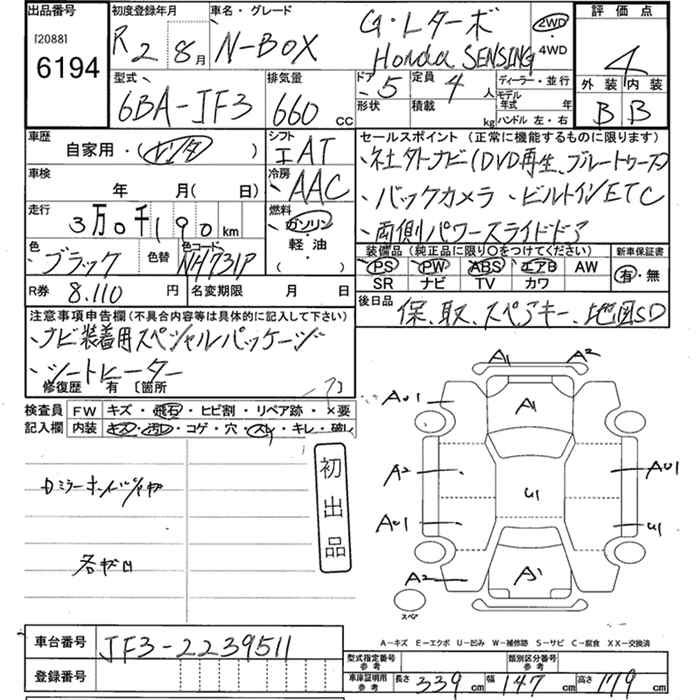 出品番号 初度登録年月 車名・グレード 評価点
[2088] R2 8月 N-BOX G・Lターボ 2WD
6194 Honda SENSING 4WD 4
型式 排気量 ドア 5 定員 4人 ディーラー・並行 外装 内装
6BA-JF3 660 CC 形状 積載 kg モデル年式 年 B B
ハンドル 左・右
車歴 シフト セールスポイント (正常に機能するものに限ります)
自家用・(レンタ) IAT 社外ナビ(DVD再生、ブルートゥース)
車検 冷房
年 月( 日) AAC バックカメラ、ビルトインETC
走行 燃料
3万0千190km ガソリン 両側パワースライドドア
色 色替 色コード 軽油 装備品(純正品に限り○をつけてください) 新車保証書
ブラック NH731P ( ) PS PW ABS エアB AW 有・無
SR ナビ TV カワ
R券 8.110 円 名変期限 月 日 後日品
保、取、スペアキー、地図SD
注意事項申告欄(不具合内容等は具体的に記入して下さい)
ナビ装着用スペシャルパッケージ
シートヒーター
修復歴 有 〔箇所 〕
検査員 FW キズ・飛石・ヒビ割・リペア跡・×要
記入欄 内装 キズ・汚レ・コゲ・穴・スレ・キレ・破レ
初出品
各キロ
A1 A2
AU1 A1
A2 U1 AU1
AU1 U1
A2 A1
スペア
A-キズ E-エクボ U-凹み W-補修跡 S-サビ C-腐食 XX-交換済
車台番号 JF3-2239511 型式指定番号 参考 類別区分番号 参考
登録番号 車庫証明用 参考 長さ 339cm 幅 147cm 高さ 179cm